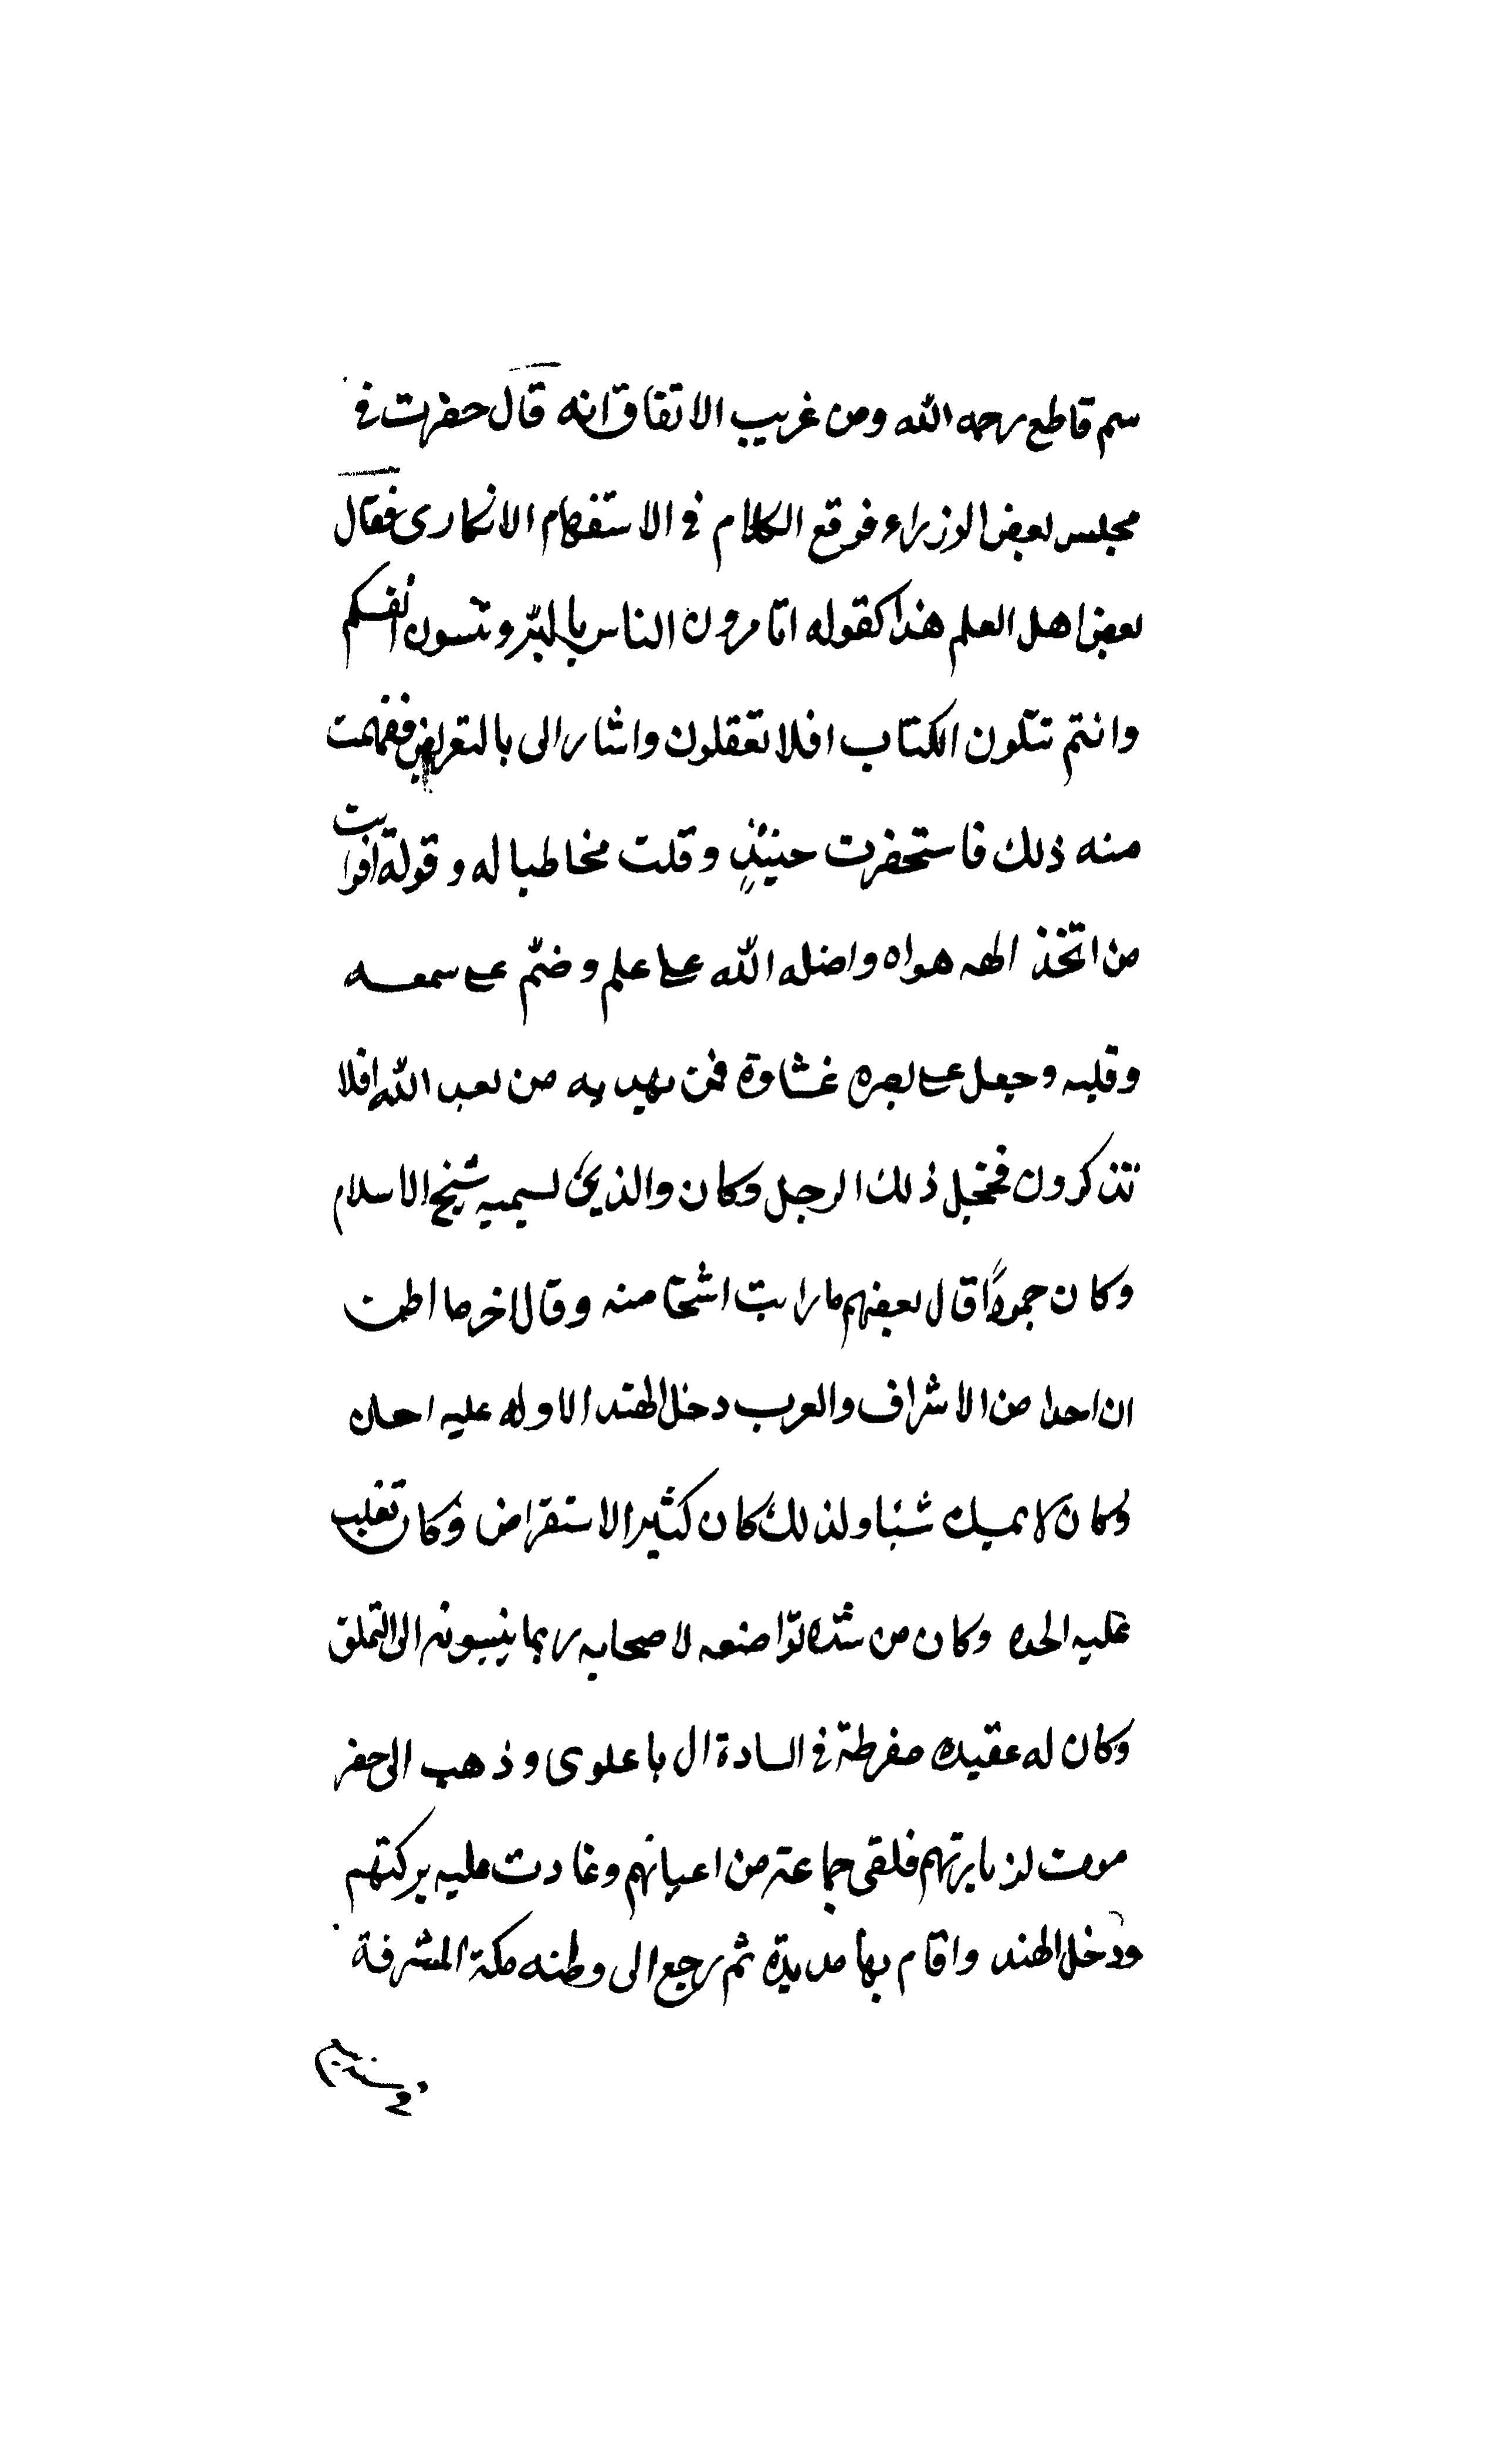 سم قاطع رحمه الله ومن غريب الاتفاق انه قال حضرت في
مجلس بعض الوزراء فوقع الكلام في الاستفهام الانكاري فقال
بعض اهل العلم هذا كقوله اتامرون الناس بالبرّ وتنسون انفسكم
وانتم تتلون الكتاب افلا تعقلون واشار الى بالتعريض ففهمت
منه ذلك فاستحضرت حينئذٍ وقلت مخاطبا له وقوله افرايت
من اتخذ الهه هواه واضله الله على علم وختم على سمعه
وقلبه وجعل على بصره غشاوة فمن يهديه من بعد الله افلا
تتذكرون فخجل ذلك الرجل وكان والذي يسميه شيخ الاسلام
وكان جموداً قال بعضهم ما رايت اشخا منه وقال اخر ما اظن
ان احدا من الاشراف والعرب دخل الهند الا وله عليه احسان
وكان لا يمسك شيئا ولذلك كان كثير الاستقراض وكان تغلب
عليه الحده وكان من شده تواضعه لاصحابه ربما ينسبونه الى التملق
وكان له عقيده مفرطة في السادة ال باعلوي وذهب الى حضر
موت لزيارتهم فلقى جماعة من اعيانهم وعادت عليه بركتهم
ودخل الهند واقام بها مديدة ثم رجع الى وطنه مكة المشرفة